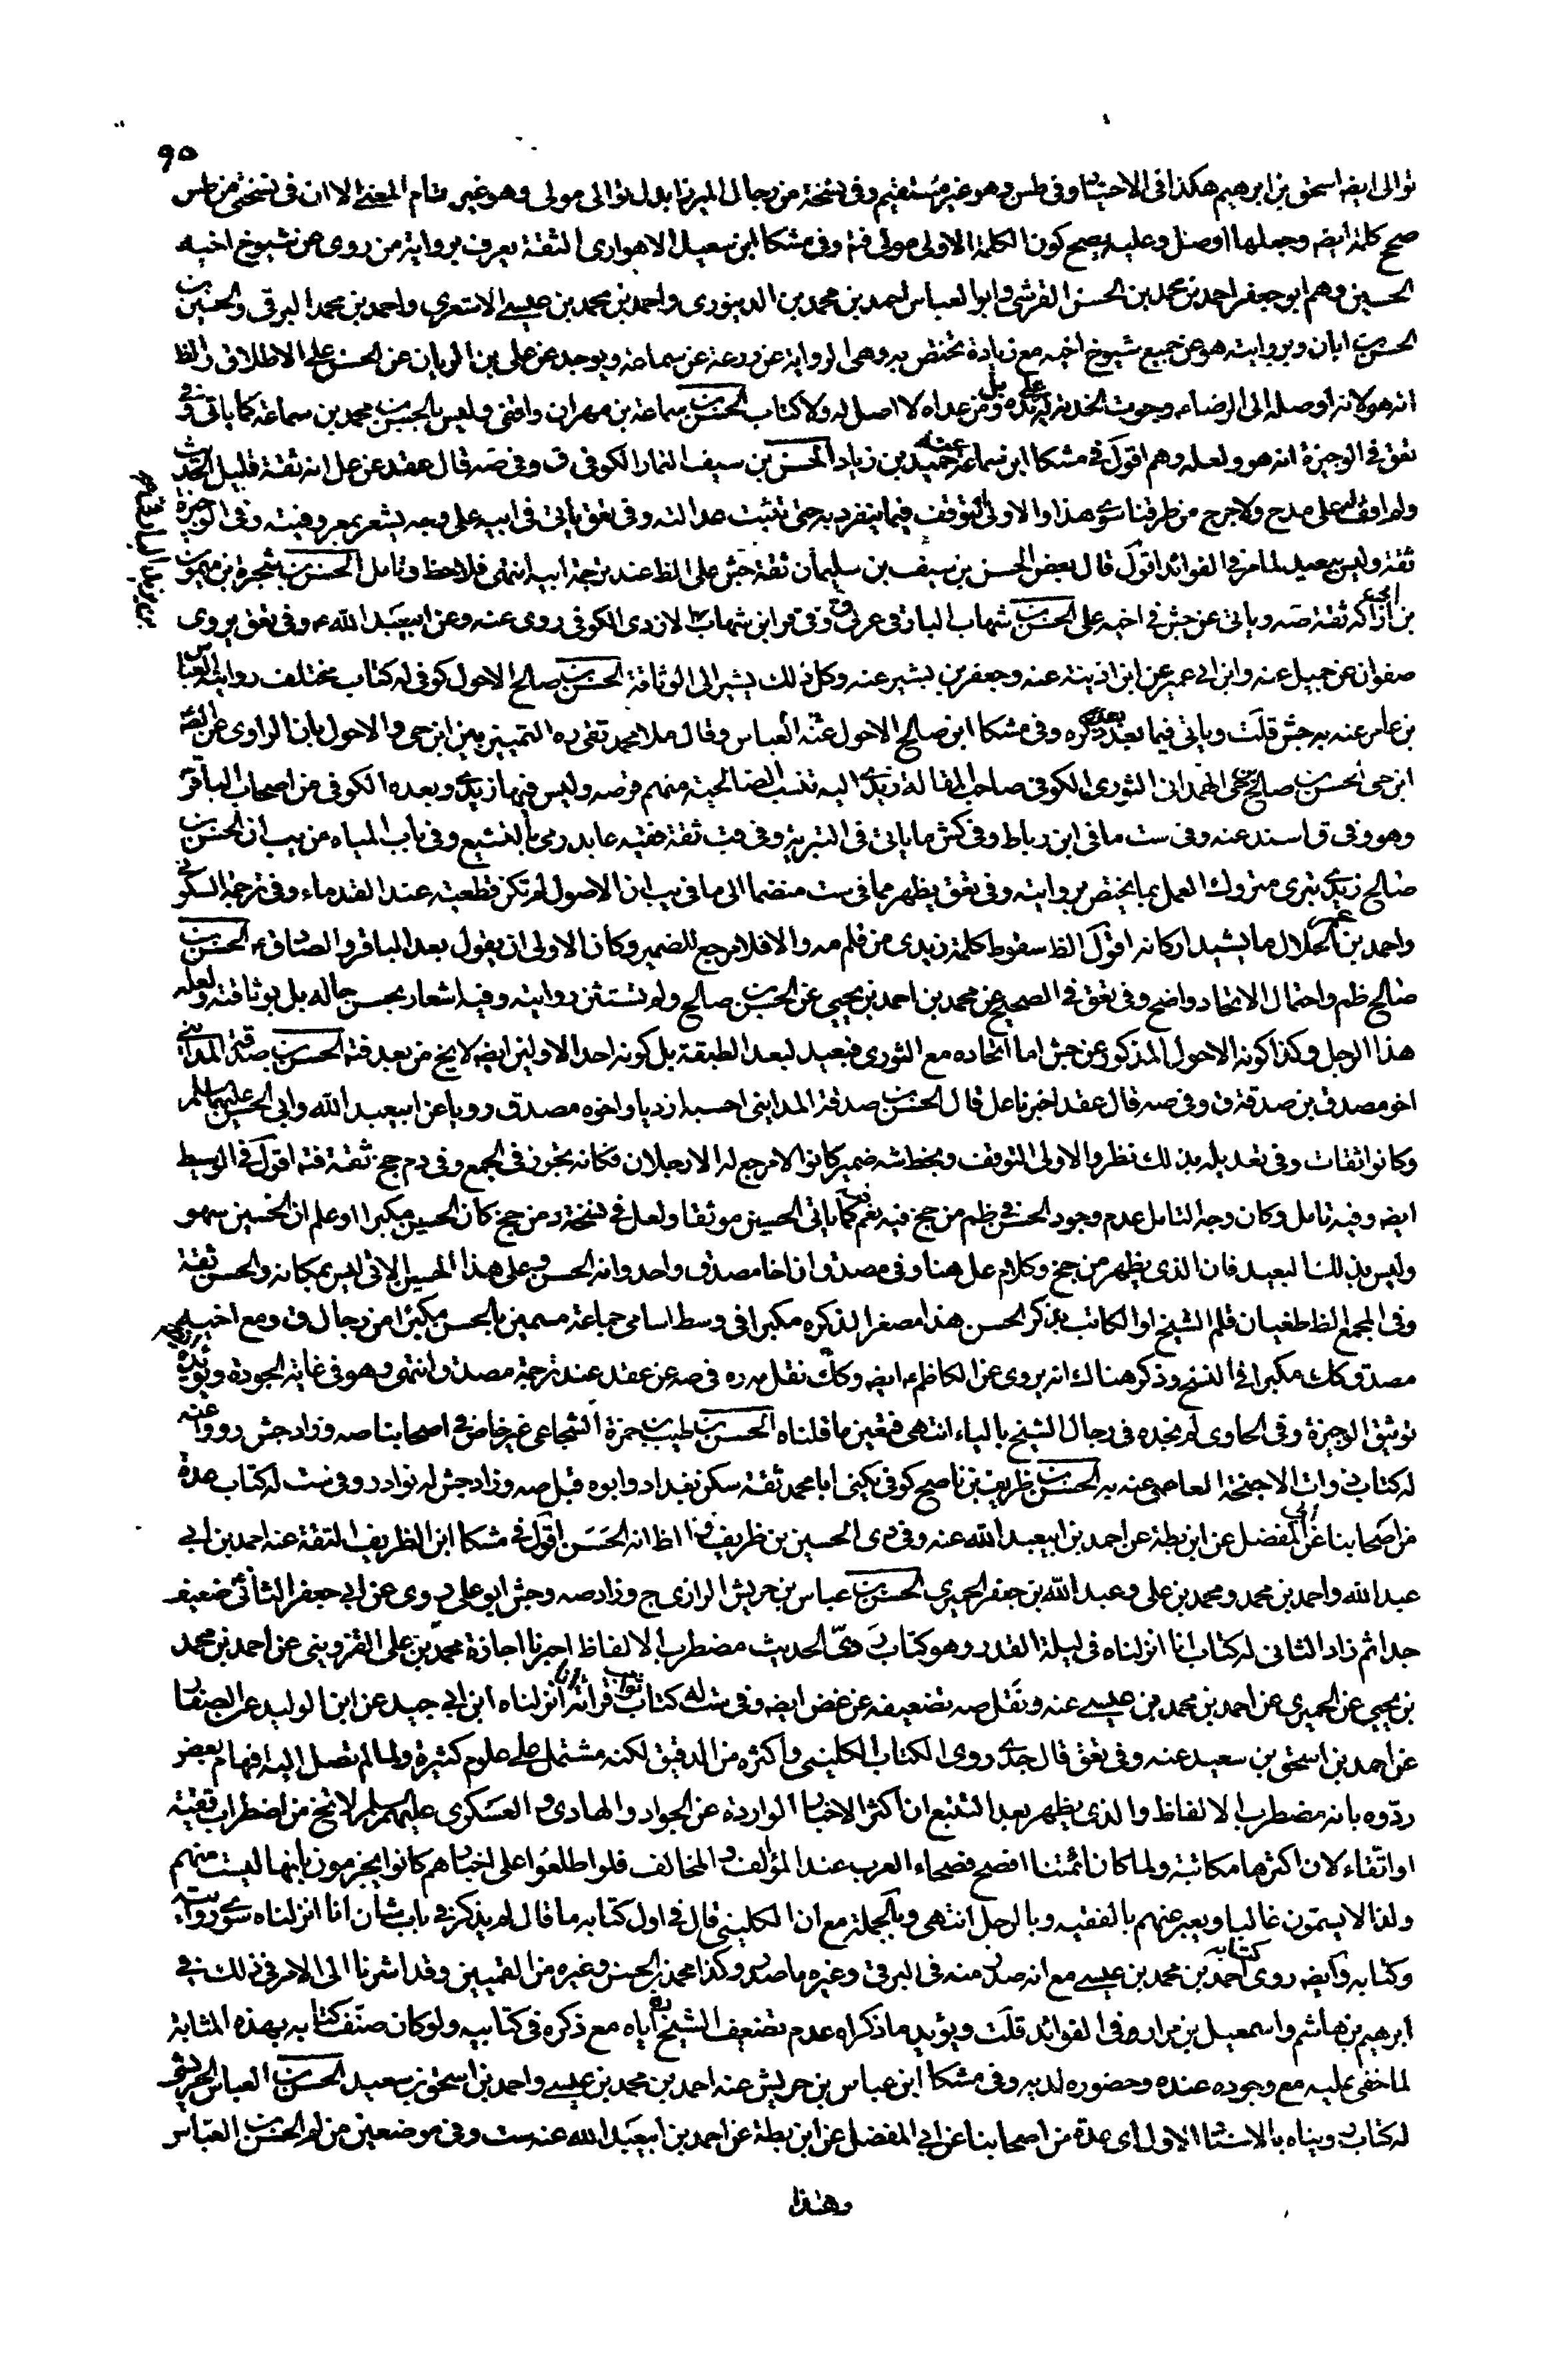 ٩٥
توالى ايضا اسحق بن ابرهيم هكذا فى الاختيار وفى طس وهو غير مستقيم وفى نسخة من رجال الميرزا بدل توالى مولى وهو غير تمام المعنى الا ان فى نسختى من طس
صحح كلمة ايضم وجعلها اوصل وعليه يصح كون الكلمة الاولى مولى فتم وفى مشكا ابن سعيد الاهوازى الثقة يعرف برواية من روى عن شيوخ اخيه
الحسين وهم ابو جعفر احمد بن محمد بن الحسن القرشى وابو العباس احمد بن محمد بن الدينورى واحمد بن محمد بن عيسى الاشعرى واحمد بن محمد البرقى والحسين بن
الحسن بن ابان وبروايته هو عن جميع شيوخ اخيه مع زيادة تختص به وهى الرواية عن زرعة عن سماعة ويوجد عن على بن الريان عن الحسن على الاطلاق والظ
انه هو لانه اوصله الى الرضاء وجرت الخدمة له على يده ومن عداه لا اصل له ولا كتاب الحسن بن سماعة بن مهران واقفى وليس بالحسن بن محمد بن سماعة كما ياتى
تعق فى الوجيزة انه هو ولعله وهم اقول فى مشكا ابن سماعة عنه حميد بن زياد الحسن بن سيف التمار الكوفى ق وفى صه قال عقد عن عل انه ثقة قليل الحديث
ولم اقف له على مدح ولا جرح من طرقنا سوى هذا والاولى التوقف فيما ينفرد به حتى تثبت عدالته وفى تعق ياتى فى ابيه على وجه يشعر بمعروفيته وفى الوجيزة
ثقة وليس ببعيد لما مر فى الفوائد اقول قال بعض الحسن بن سيف بن سليمان ثقة جش على الظ عند ترجمة ابيه انتهى فلاحظ وتامل الحسن بن شجرة بن ميمون
بن ابى اراكه ثقة صه وياتى عن جش فى اخيه على الحسن بن شهاب البارقى عربى ق وفى قر ابن شهاب الازدى الكوفى روى عنه وعن ابيعبد الله ع وفى تعق يروى
صفوان عن جميل عنه وابن ابى عمير عن ابن اذينة عنه وجعفر بن بشير عنه وكل ذلك يشير الى الوثاقة الحسن بن صالح الاحول كوفى له كتاب مختلف روايته العباس
بن عامر عنه به جش قلت وياتى فيما بعد ذكره وفى مشكا ابن صالح الاحول عنه العباس وقال ملا محمد تقى ره التمييز بين ابن حى والاحول بان الراوى عن
ابن حى الحسن بن صالح بن حى الهمدانى الثورى الكوفى صاحب المقالة زيدى اليه تنسب الصالحية منهم قر صه وليس فيها زيدى وبعده الكوفى من اصحاب الباقر
وهو وفى ق اسند عنه وفى ست ما فى ابن رباط وفى كش ما ياتى فى البترية وفى قب ثقة فقيه عابد رمى بالتشيع وفى باب المياه من يب ان الحسن بن
صالح زيدى بترى متروك العمل بما يختص بروايته وفى تعق يظهر مما فى ست منضما الى ما فى يب ان الاصول لم تكن قطعية عند القدماء وفى ترجمة السكونى
واحمد بن عمر الحلال ما يشيد اركانه اقول الظ سقوط كلمة زيدى من قلم مه والا فلا مرجع للضمير وكان الاولى ان يقول بعد الباقر والصادق ع الحسن بن
صالح ظم واحتمال الاتحاد واضح وفى تعق فى الصحيح عن محمد بن احمد بن يحيى عن الحسن بن صالح ولم تستثن روايته وفيه اشعار بحسن حاله بل بوثاقته ولعله
هذا الرجل وكذا كونه الاحول المذكور عن جش اما اتحاده مع الثورى فبعيد لبعد الطبقة بل كونه احد الاولين ايضه لا يخ من بعد فتم الحسن بن صدقة المداينى
اخو مصدق بن صدقة ق وفى صه قال عقد اخبرنا عل قال الحسن بن صدقة المداينى احسبه ازديا واخوه مصدق رويا عن ابيعبد الله وابى الحسن عليهما السلم
وكانوا ثقات وفى تعديله بذلك نظر والاولى التوقف وبخط شه ضمير كانوا لا مرجع له الا رجلان فكانه تجوز فى الجمع وفى دم جخ ثقة فتم اقول فى الوسيط
ايضه وفيه تامل وكان وجه التامل عدم وجود الحسن فى ظم من جخ فيه نعم كما ياتى الحسين موثقا ولعل فى نسخة د من جخ كان الحسين مكبرا او علم ان الحسين سهو
وليس بذلك البعيد فان الذى يظهر من جخ وكلام عل هنا وفى مصدق ان اخا مصدق واحد وانه الحسن فعلى هذا الحسين الاتى ليس بمكانه والحسن ثقة
وفى المجمع الظ طغيان قلم الشيخ او الكاتب بذكر الحسن هذا مصغرا لذكره مكبرا فى وسط اسامى جماعة مسمين بالحسن مكبرا من رجال ق ومع اخيه
مصدق كك مكبرا فى النسخ وذكر هناك انه يروى عن الكاظم ع ايضه وكك نقل مه ره فى صه عن عقد عند ترجمة مصدق انتهى وهو فى غاية الجودة ويؤيده
توثيق الوجيزة وفى الحاوى لم نجده فى رجال الشيخ بالياء انتهى فتعين ما قلناه الحسن بن طيب بن حمزة الشجاعى غير خاص فى اصحابنا صه وزاد جش رووا عنه
له كتاب ذوات الاجنحة العاصمى عنه به الحسن بن ظريف بن ناصح كوفى يكنى ابا محمد ثقة سكن ببغداد وابوه قبل صه وزاد جش له نوادر وفى ست له كتاب عدة
من اصحابنا عن ابى المفضل عن ابن بطة عن احمد بن ابيعبد الله عنه وفى دى الحسين بن ظريف والظ انه الحسن اقول فى مشكا ابن الظريف الثقة عنه احمد بن ابى
عبد الله واحمد بن محمد ومحمد بن على وعبد الله بن جعفر الحميرى الحسن بن عباس بن حريش الرازى ج وزاد صه وجش ابو على روى عن ابى جعفر الثانى ضعيف
جدا ثم زاد الثانى له كتاب انا انزلناه فى ليلة القدر وهو كتاب ردى الحديث مضطرب الالفاظ اخبرنا اجازة محمد بن على القزوينى عن احمد بن محمد
بن يحيى عن الحميرى عن احمد بن محمد بن عيسى عنه ونقل صه تضعيفه عن غض ايضه وفى ست له كتاب ثواب قرائة انا انزلناه ابن ابى جيد عن ابن الوليد عن الصفار
عن احمد بن اسحق بن سعيد عنه وفى تعق قال جدى روى الكتاب الكلينى واكثره من الدقيق لكنه مشتمل على علوم كثيرة ولما لم تصل اليه افهام بعض
ردوه بانه مضطرب الالفاظ والذى يظهر بعد التتبع ان اكثر الاخبار الواردة عن الجواد والهادى والعسكرى عليهم السلم لا تخ من اضطراب تقية
او اتقاء لان اكثرها مكاتبة ولما كان ائمتنا افصح فصحاء العرب عند المؤالف والمخالف فلو اطلعوا على اخبارهم كانوا يجزمون بانها ليست منهم
ولذا لا يسمون غالبا ويعبر عنهم بالفقيه وبالرجل انتهى وبالجملة مع ان الكلينى قال فى اول كتابه ما قال لم يذكر فى باب شان انا انزلناه سوى روايته
وكتابه وايضه روى كتابه احمد بن محمد بن عيسى مع انه صدر منه فى البرقى وغيره ما صدر وكذا محمد بن الحسن وغيره من القميين وقد اشرنا الى الامر فى ذلك فى
ابرهيم بن هاشم واسمعيل بن مرار وفى الفوائد قلت ويؤيد ما ذكراه عدم تضعيف الشيخ اياه مع ذكره فى كتابيه ولو كان صنف كتابه بهذه المثابة
لما خفى عليه مع وجوده عنده وحضوره لديه وفى مشكا ابن عباس بن حريش عنه احمد بن محمد بن عيسى واحمد بن اسحق بن سعيد الحسن بن العباس الحريشى
له كتاب رويناه بالاسناد الاول اى عدة من اصحابنا عن ابى المفضل عن ابن بطة عن احمد بن ابيعبد الله عنه ست وفى موضعين من لم الحسن بن العباس
وهذا